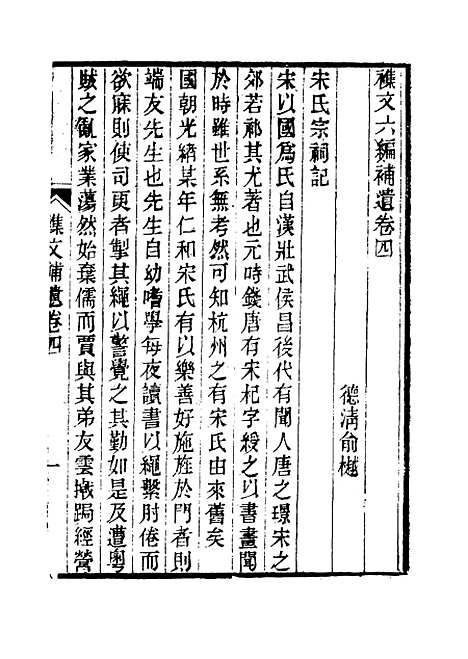 襍文六編補遺卷四
德淸俞樾
宋氏宗祠記
宋以國爲氏自漢壯武侯昌後代有聞人唐之璟宋之
郊若祁其尤著也元時錢唐有宋杞字綬之以書畫聞
於時雖世系無考然可知杭州之有宋氏由來舊矣
國朝光緖某年仁和宋氏有以樂善好施旌於門者則
端友先生也先生自幼嗜學每夜讀書以繩繫肘倦而
欲麻則使司更者掣其繩以警覺之其勤如是及遭粵
賊之亂家業蕩然始棄儒而賈與其弟友雲撠挶經營
襍文補遺卷四
一